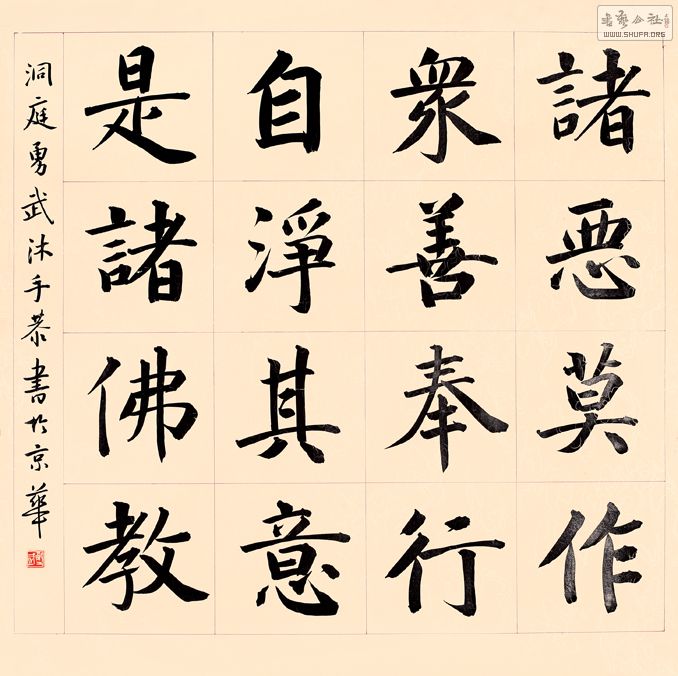 諸惡莫作
衆善奉行
自淨其意
是諸佛教
洞庭勇武沐手恭書於京華
書藝公社
WWW.SHUFA.ORG